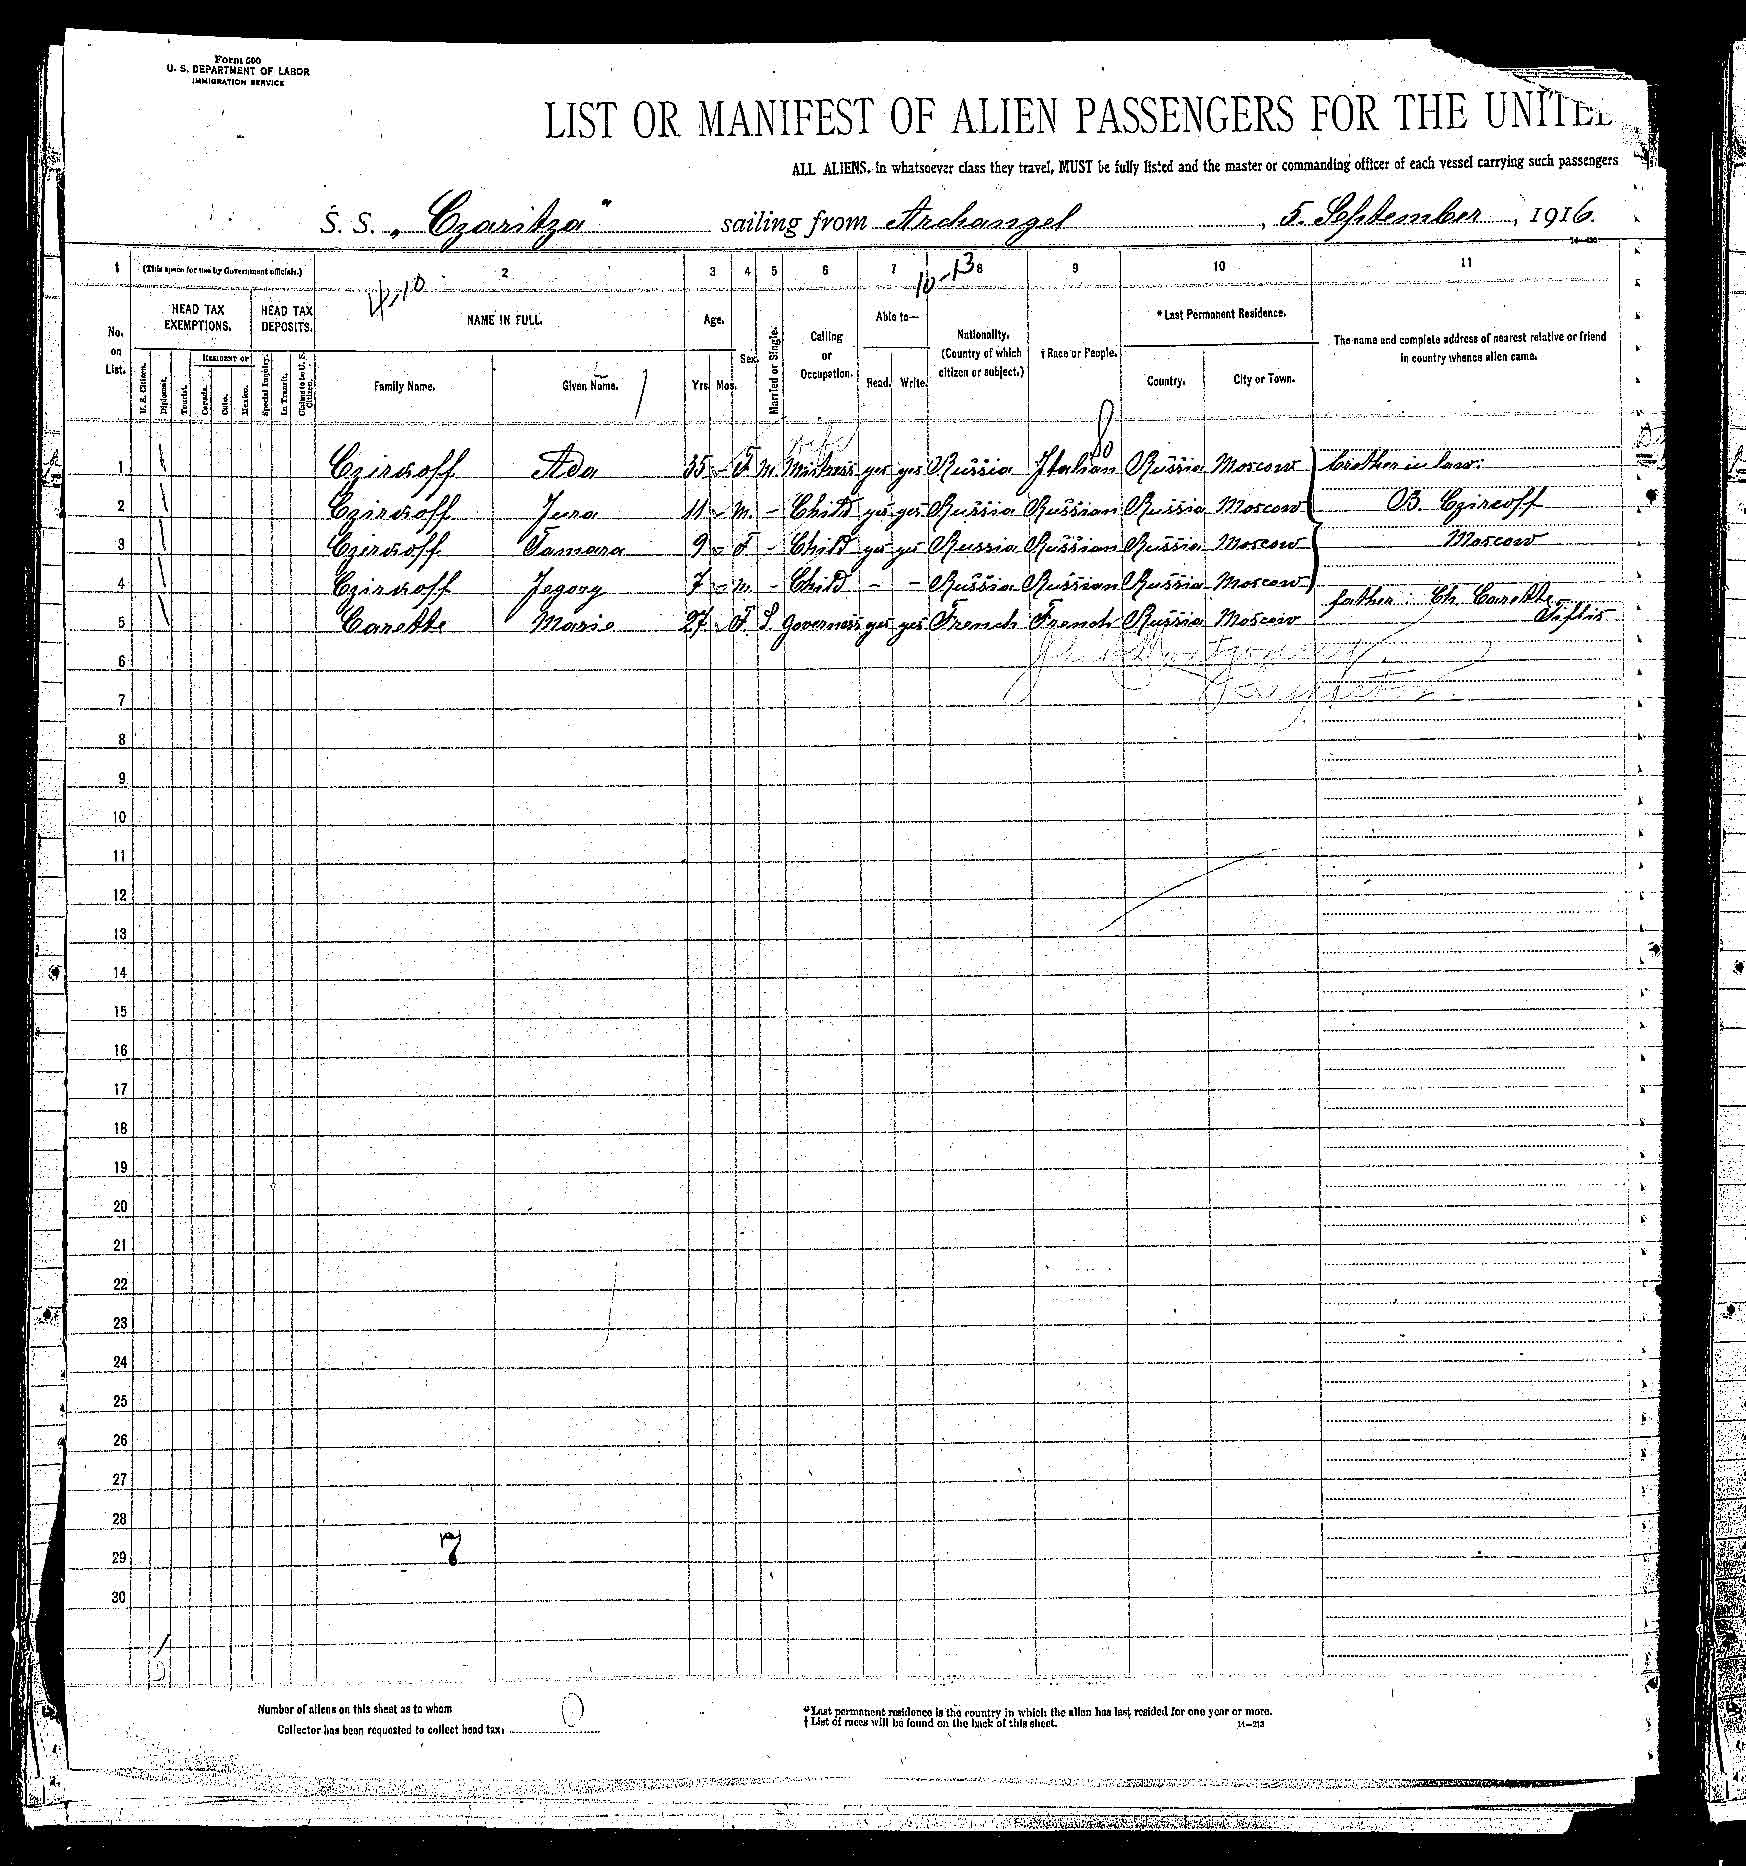 Form 500
U. S. DEPARTMENT OF LABOR
IMMIGRATION SERVICE
LIST OR MANIFEST OF ALIEN PASSENGERS FOR THE UNITED
ALL ALIENS, in whatsoever class they travel, MUST be fully listed and the master or commanding officer of each vessel carrying such passengers
S. S. „Czaritza" sailing from Archangel, 5. September, 1916.
1 (This space for use by Government officials.) 2 3 4 5 6 7 8 9 10 11
10-13
No. on List.
HEAD TAX EXEMPTIONS.
HEAD TAX DEPOSITS.
NAME IN FULL.
Age.
Sex.
Married or Single.
Calling or Occupation.
Able to—
Nationality. (Country of which citizen or subject.)
† Race or People.
*Last Permanent Residence.
The name and complete address of nearest relative or friend in country whence alien came.
U. S. Citizen. Diplomat. Tourist. RESIDENT OF Canada. Cuba. Mexico. Special Inquiry. In Transit. Claimed to be U. S. Citizen.
Family Name. Given Name. Yrs. Mos. Read. Write. Country. City or Town.
1 Czircoff Ada 35 - F. M. Mistress yes yes Russia Italian Russia Moscow brother in law:
2 Czircoff Jura 11 - M. - Child yes yes Russia Russian Russia Moscow B. Czircoff
3 Czircoff Tamara 9 - F. - Child yes yes Russia Russian Russia Moscow Moscow
4 Czircoff Jegory 7 - M. - Child - - Russia Russian Russia Moscow
5 Carette Marie 27 - F. S. Governess yes yes French French Russia Moscow father: Ch. Carette Tiflis
6
7
8
9
10
11
12
13
14
15
16
17
18
19
20
21
22
23
24
25
26
27
28
29
30
7
Number of aliens on this sheet as to whom
Collector has been requested to collect head tax: 0
*Last permanent residence is the country in which the alien has last resided for one year or more.
† List of races will be found on the back of this sheet. 14—213